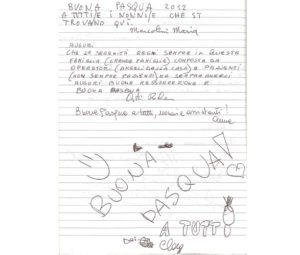 BUONA PASQUA 2012
A TUTTI E I NONNI E CHE SI
TROVANO QUI.
Marcolini Maria
AUGURI
CHE LA SERENITÀ REGNI SEMPRE IN QUESTA
FAMIGLIA (GRANDE FAMIGLIA) COMPOSTA DA
OPERATORI (ANGELI DELLA CASA) E PAZIENTI
(NON SEMPRE PAZIENTI) MA SEMPRE
AUGURI BUONA RESURREZIONE E
BUONA PASQUA
Buona Pasqua a tutti, nonni e assistenti!
BUONA
PASQUA!
A TUTTI
DAI